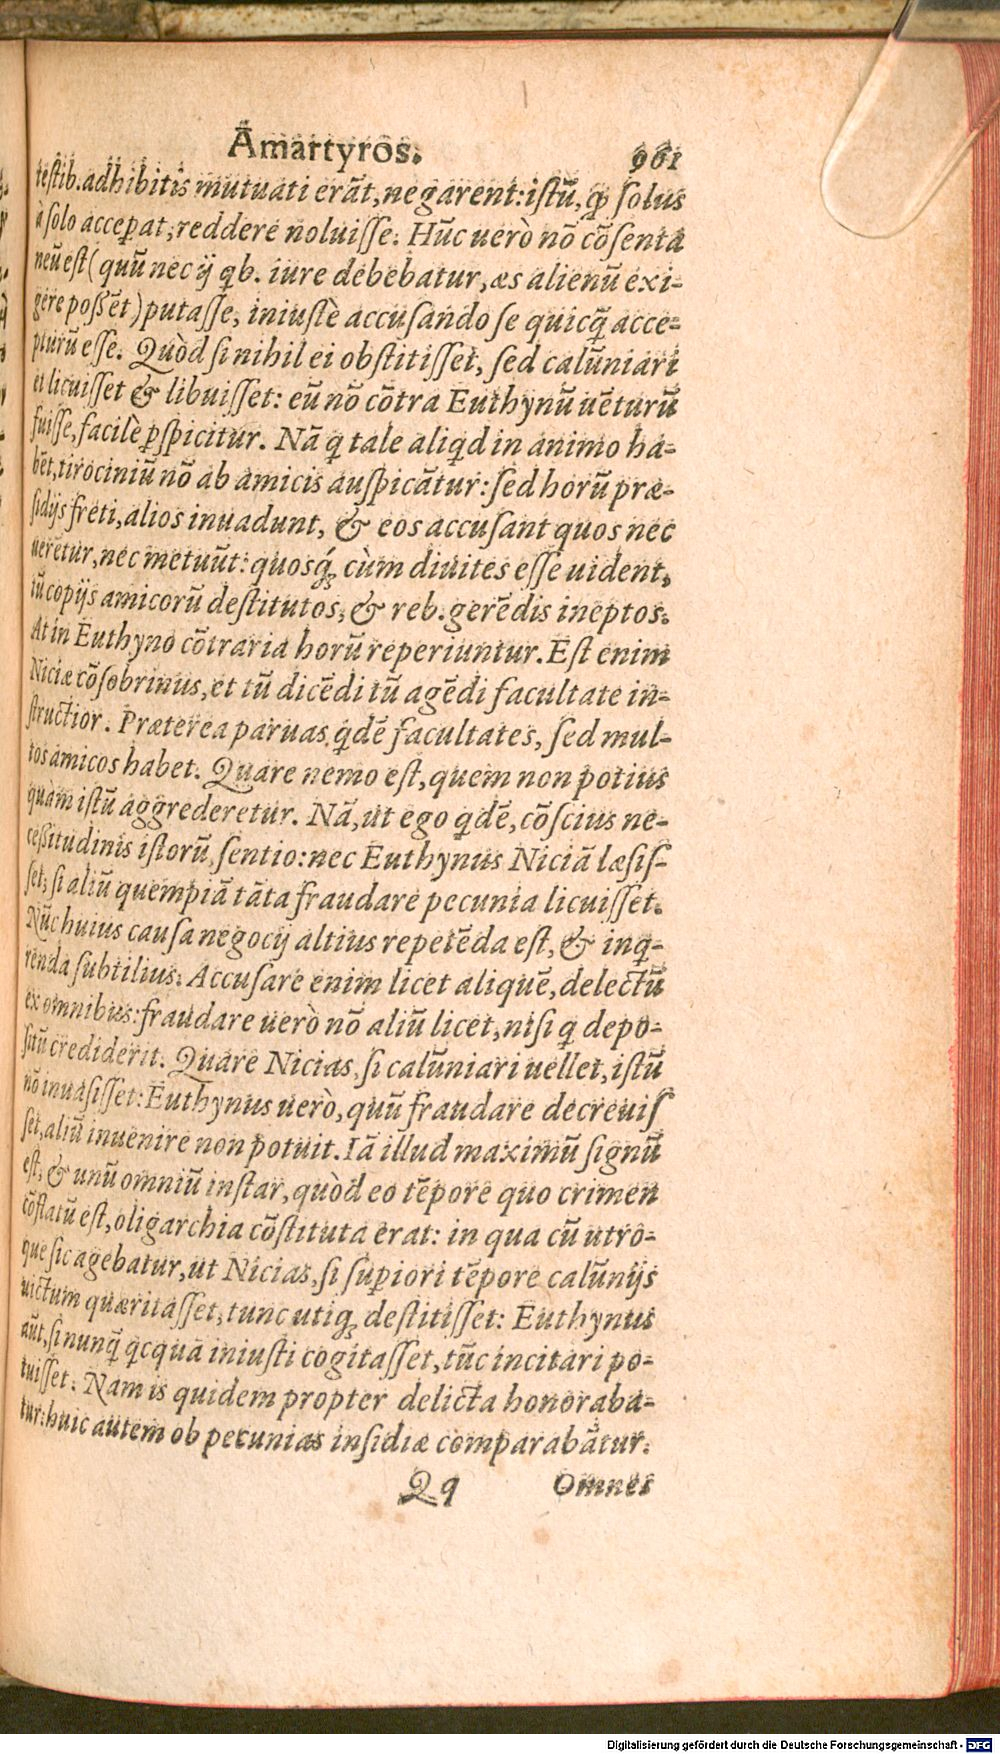 Amartyros. 961
testib. adhibitis mutuati erãt, negarent: istũ, qꝓ solus
à solo acceꝑat, reddere noluisse. Hũc uerò nõ cõsentã
neũ est (quũ nec ij qb. iure debebatur, æs alienũ exi-
gere possẽt) putasse, iniustè accusando se quicq̃ acce-
pturũ esse. Quòd si nihil ei obstitisset, sed calũniari
et licuisset & libuisset: eũ nõ cõtra Euthynũ uẽturũ
fuisse, facilè ꝑspicitur. Nã q tale aliqd in animo ha-
bẽt, tirociniũ nõ ab amicis auspicãtur: sed horũ præ-
sidijs freti, alios inuadunt, & eos accusant quos nec
ueretur, nec metuũt: quosq́; cùm diuites esse uident,
tũ copijs amicorũ destitutos, & reb. gerẽdis ineptos.
At in Euthyno cõtraria horũ reperiuntur. Est enim
Niciæ cõsobrinus, et tũ dicẽdi tũ agẽdi facultate in-
structior. Præterea paruas qdẽ facultates, sed mul-
tos amicos habet. Quare nemo est, quem non potius
quàm istũ aggrederetur. Nã, ut ego qdẽ, cõscius ne-
cessitudinis istorũ, sentio: nec Euthynus Niciã læsis-
set, si aliũ quempiã tãta fraudare pecunia licuisset.
Nũc huius causa negocij altius repetẽda est, & inq-
renda subtilius. Accusare enim licet aliquẽ, delectũ
ex omnibus: fraudare uerò nõ aliũ licet, nisi q depo-
sitũ crediderit. Quare Nicias, si calũniari uellet, istũ
nõ inuasisset: Euthynus uerò, quũ fraudare decreuis
set, aliũ inuenire non potuit. Iã illud maximũ signũ
est, & unũ omniũ instar, quòd eo tẽpore quo crimen
cõflatũ est, oligarchia cõstituta erat: in qua cũ utro-
que sic agebatur, ut Nicias, si suꝑiori tẽpore calũnijs
uictum quæritasset, tunc utiq; destitisset: Euthynus
aũt, si nunq̃ qcquã iniusti cogitasset, tũc incitari po-
tuisset. Nam is quidem propter delicta honoraba-
tur: huic autem ob pecunias insidiæ comparabãtur.
Qq Omnes
Digitalisierung gefördert durch die Deutsche Forschungsgemeinschaft - DFG